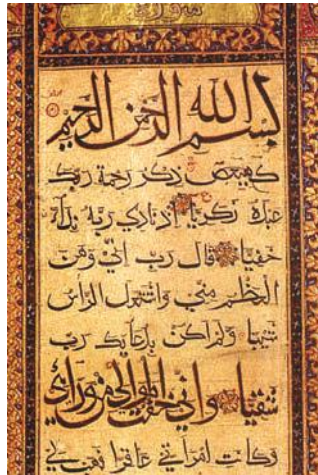 بسم الله الرحمن الرحيم
كهيعص ذكر رحمة ربك
عبده زكريا إذ نادى ربه نداء
خفيا قال رب إني وهن
العظم مني واشتعل الرأس
شيبا ولم أكن بدعائك رب
شقيا وإني خفت الموالي من وراءي
وكانت امرأتي عاقرا فهب لي